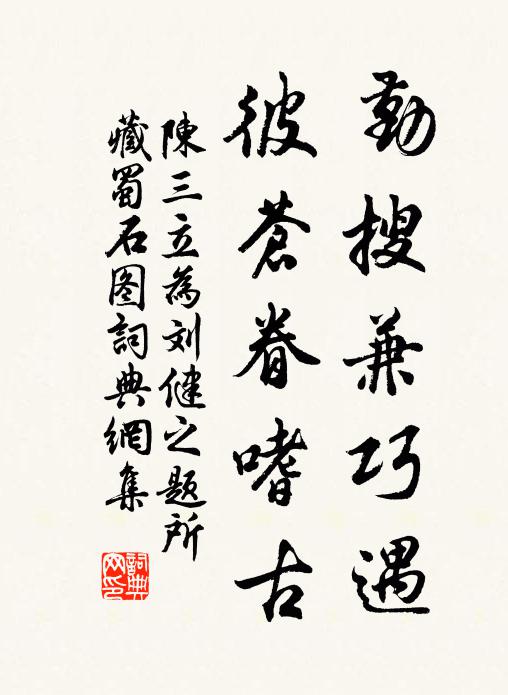 勤搜兼巧遇
彼蒼眷嗜古
陳三立為刘健之题所
藏蜀石图詞典網集
詞典
网印